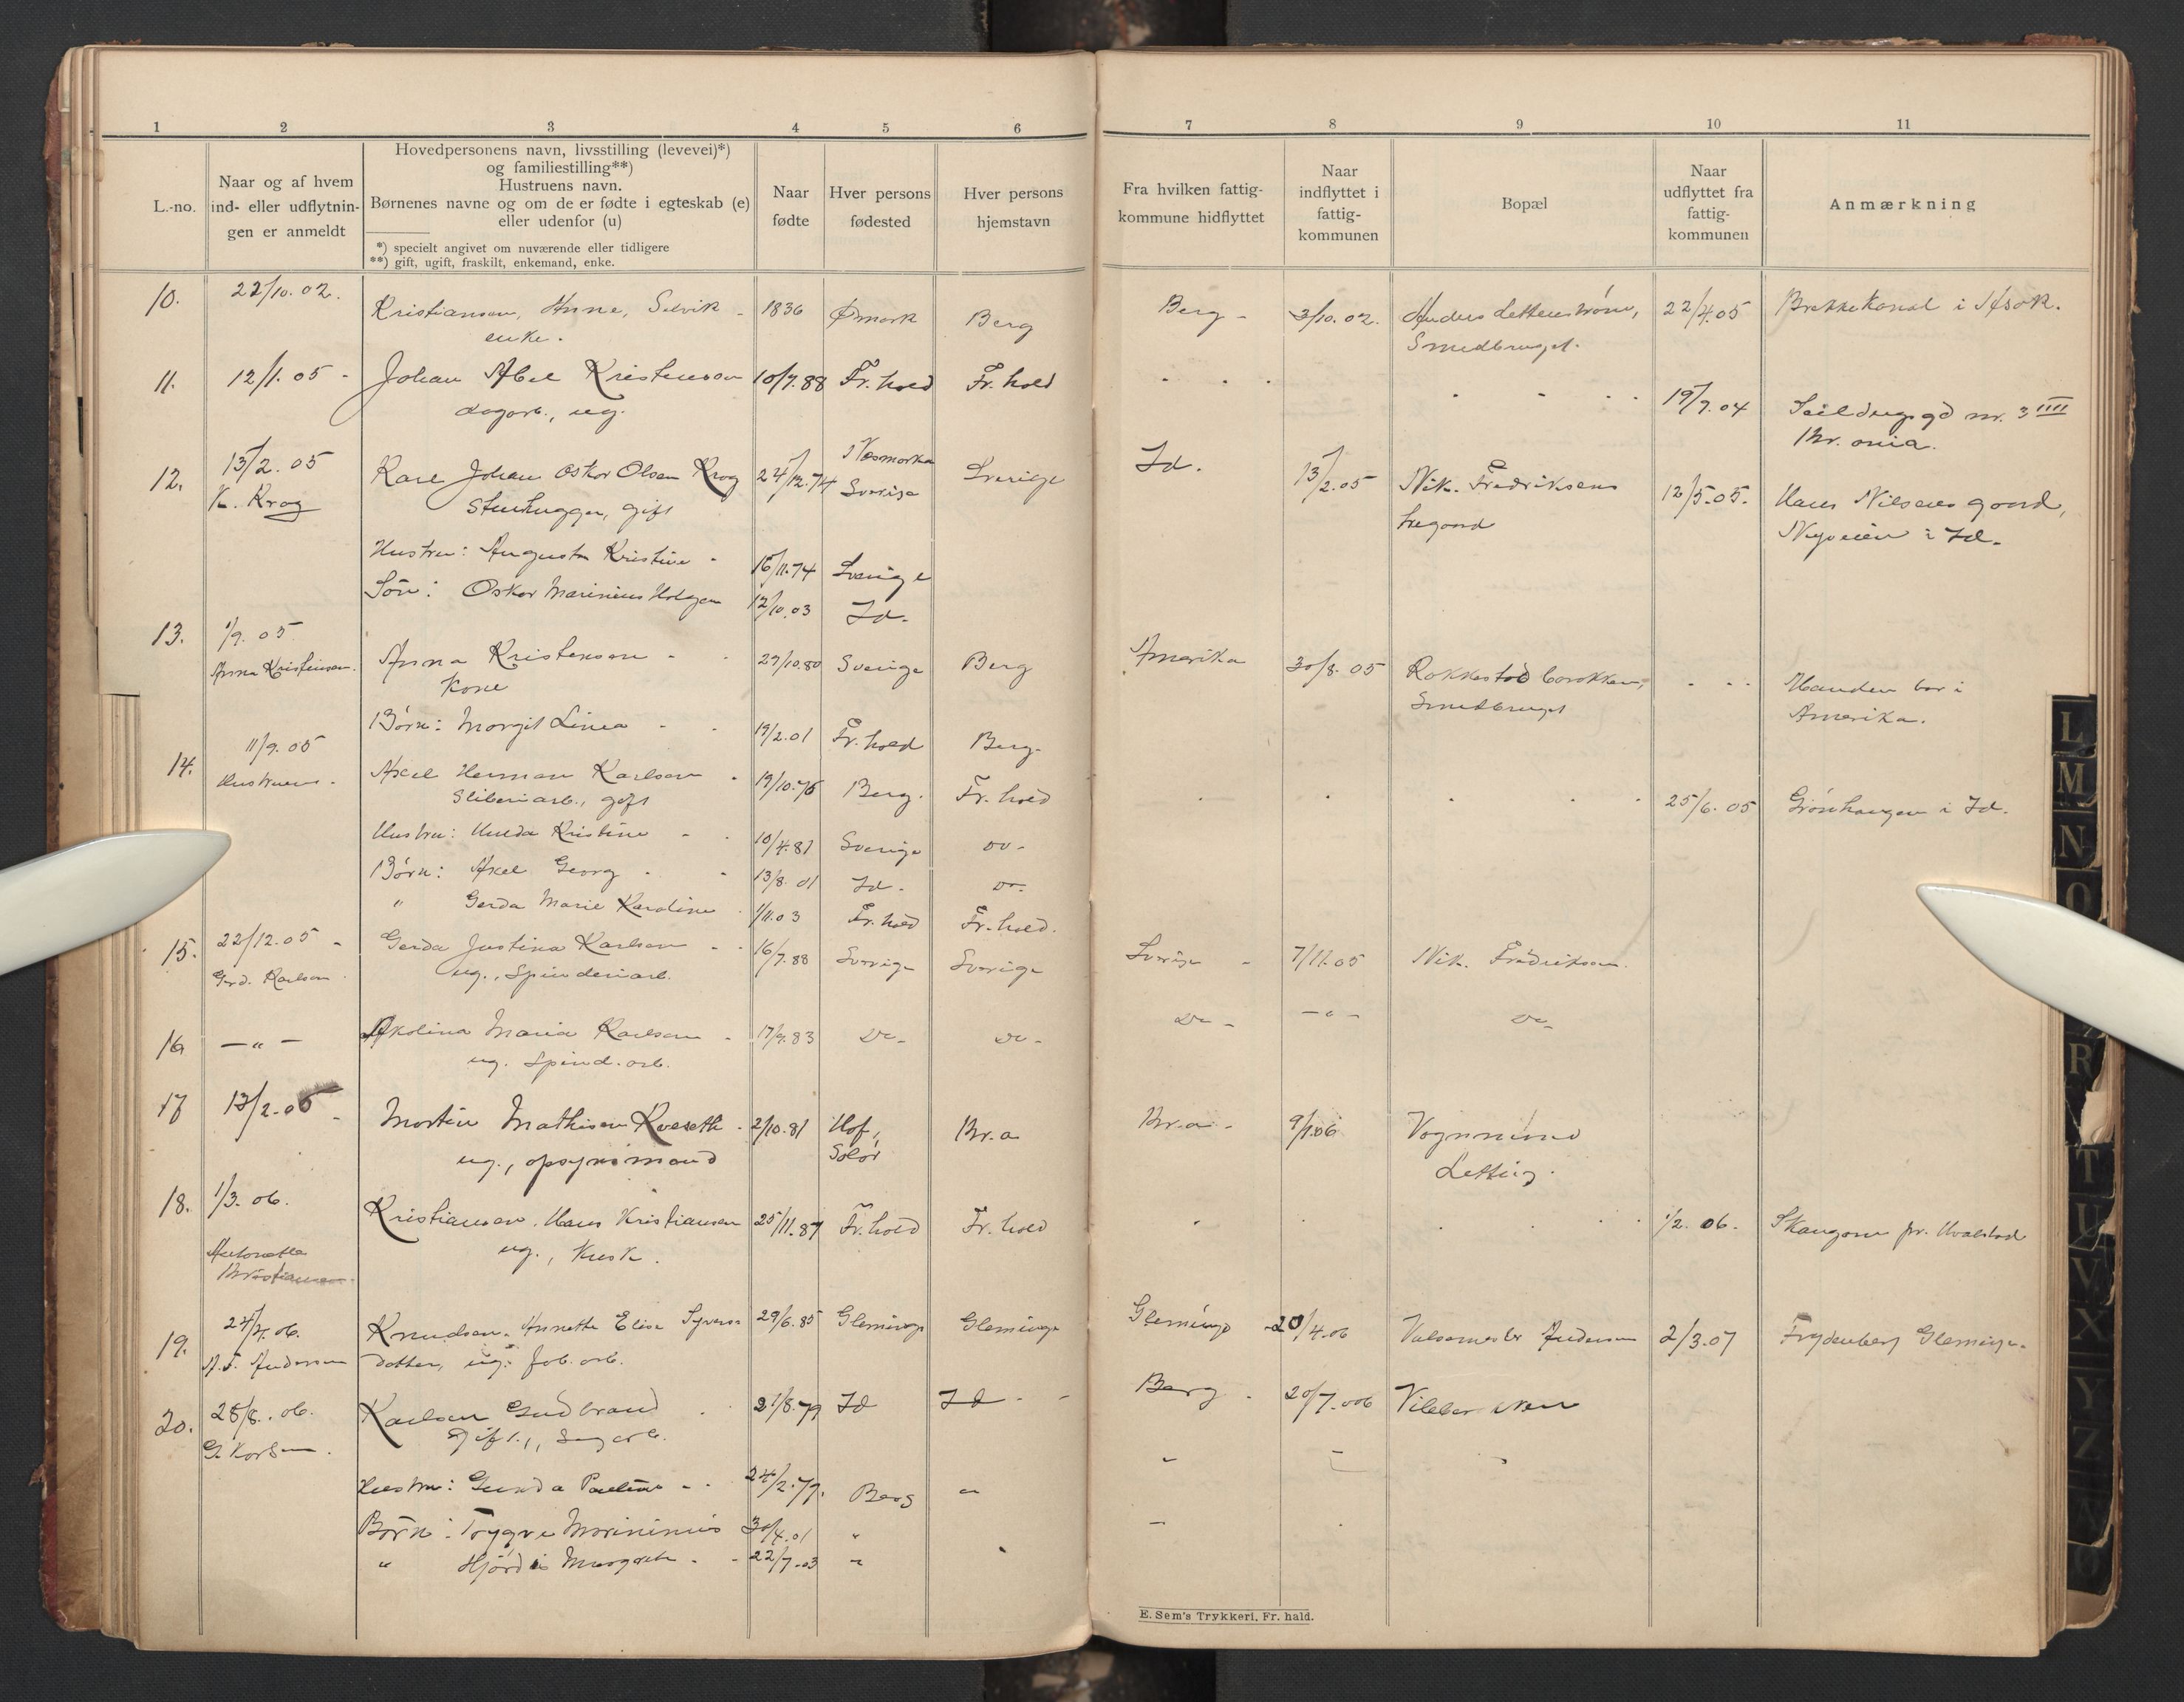 1 2 3 4 5 6 7 8 9 10 11
L.-no.
Naar og af hvem
ind- eller udflytnin-
gen er anmeldt
Hovedpersonens navn, livsstilling (levevei)*)
og familiestilling**)
Hustruens navn.
Børnenes navne og om de er fødte i egteskab (e)
eller udenfor (u)
*) specielt angivet om nuværende eller tidligere
**) gift, ugift, fraskilt, enkemand, enke.
Naar
fødte
Hver persons
fødested
Hver persons
hjemstavn
Fra hvilken fattig-
kommune hidflyttet
Naar
indflyttet i
fattig-
kommunen
Bopæl
Naar
udflyttet fra
fattig-
kommunen
Anmærkning
10. 22/10.02. Kristiansen, Anne, - 1836 Ømark Berg Berg - 3/10.02. Anders 22/4.05 Brekke Kanal i Asak.
enke. Smedbruget.
11. 12/1.05 - Johan Abel Kristenson 10/7.88 Fr.hald Fr.hald
dagarb., ug. 19/7.04 nr. 3 IIII
Kr.ania.
12. 13/2.05 Karl Johan Oskar Olsen Krog 24/12.74 Sverige Sverige Id. 13/2.05 Nik. Fredriksens 12/5.05. Hans Nilsens gaard,
K. Krog Stenhugger, gift Nyveien i Id.
Hustru: Augusta Kristine - 16/11.74 Sverige
Søn: Oskar Marinius Holger 12/10.03 Id.
13. 1/9.05 Anna Kristenson - 29/10.80 Sverige Berg Amerika 30/8.05 Rokkestad barakken, Manden bor i
Anna Kristensen. Kone Smedbruget Amerika.
Børn: Margit Linea - 19/2.01 Fr.hald Berg
14. 11/9.05 Axel Herman Karlsen 19/10.76 Berg. Fr.hald 25/6.05 Grønhaugen i Id.
Hustruen - Sliberiarb., gift
Hustru: Hulda Kristine - 10/4.81 Sverige do -
Børn: Axel Georg - 13/8.01 Id. do -
" Gerda Marie Karoline 1/11.03 Fr.hald Fr.hald.
15. 22/12.05 - Gerda Justina Karlson - 16/7.88 Sverige Sverige Sverige - 7/11.05 Nik. Fredriksen.
Gerd. Karlson ug., Spinderiarb.
16 - " - Maria Karlson - 17/9.83 Do - do - Do - - " - do -
ug. Spind.arb.
17 13/2.06 - Martin Mathisen - 2/10.81 Hof, Kr.a Kr.a - 9/1.06 Vognmand
ug., opsynsmand Solør
18. 1/3.06. Kristiansen, Hans Kristiansen 25/11.87 Fr.hald Fr.hald 1/2.06. pr. Hvalstad
Antonette Kristiansen ug., Kusk.
19. 24/4.06. Knudsen, Annette Elise Syvers- 29/6.85 Glemminge Glemminge Glemminge 20/4.06 Valsemester Andersen 2/3.07 Frydenberg Glemminge.
Andersen datter, ug. fab.arb.
20. 28/8.06. Karlsen Gudbrand 21/8.79 Id Id - - Berg - 20/7.006
G Karlsen. gift, Sagarb.
Hustru: Gunda Pauline - - 24/2.79. Berg "
Børn: Trygve Marinius 30/4.01 "
" Hjørdis Margrete - - 22/7.03 "
E. Sem's Trykkeri, Fr. hald.
L
M
N
O
R
T
U
V
X
Y
Z